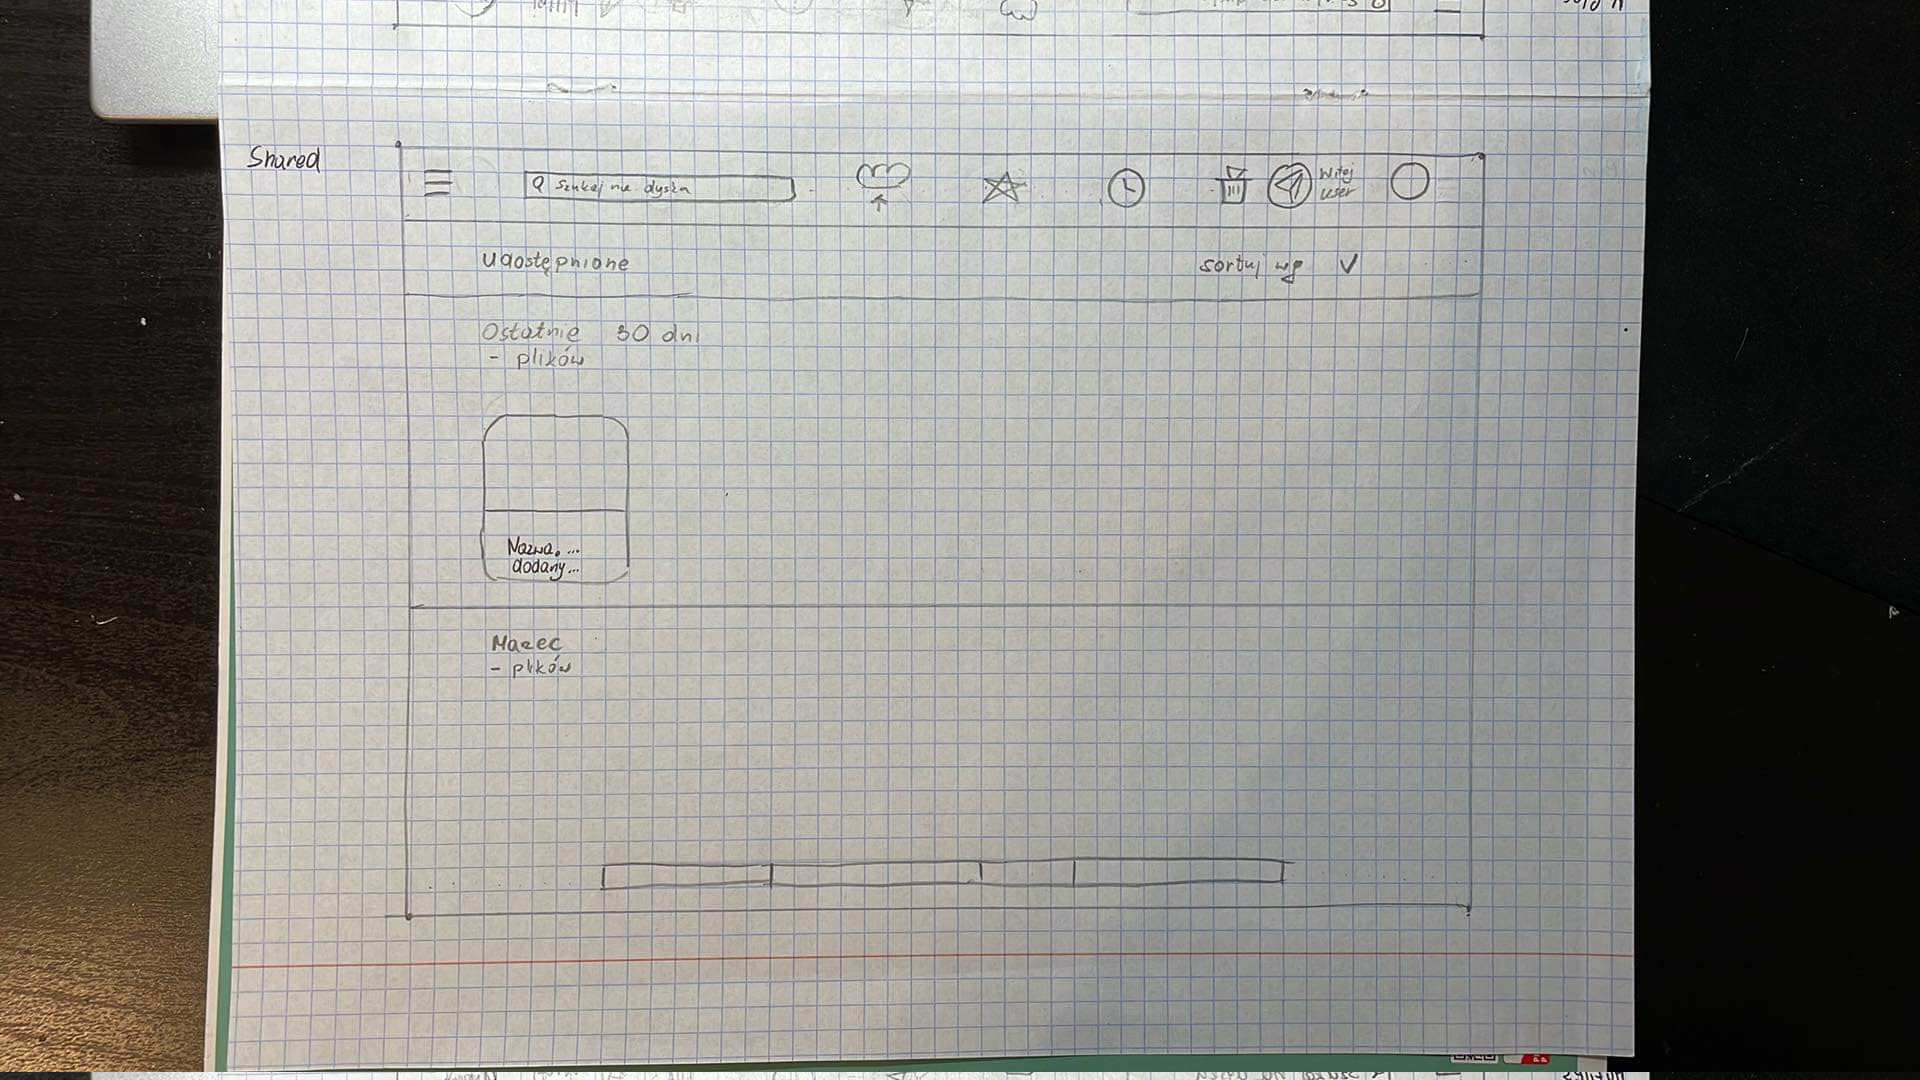 Shared
Szukaj na dysku
Witaj
user
Udostępnione
sortuj wg
Ostatnie 30 dni
- plików
Nazwa. ...
dodany...
Mazec
- plików